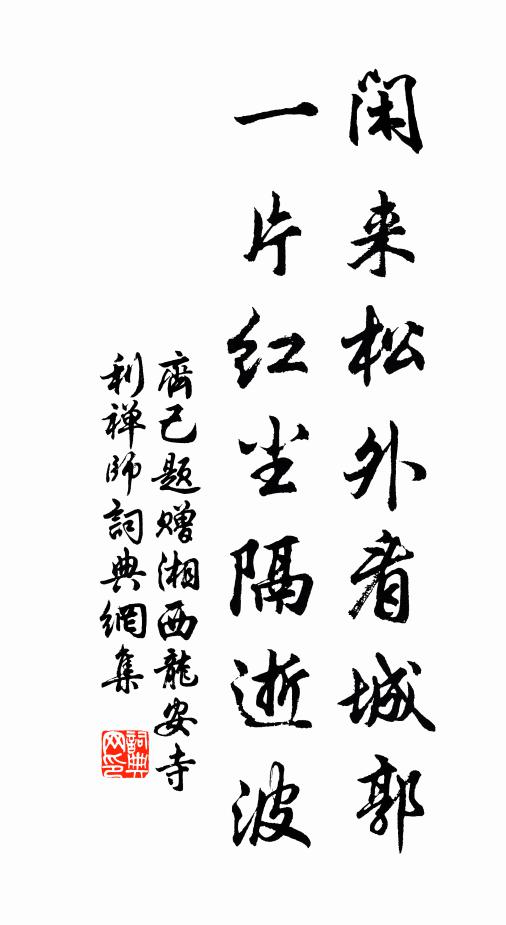 闲来松外看城郭
一片红尘隔逝波
齊己题赠湘西龍安寺
利禅师詞典網集
詞典网印